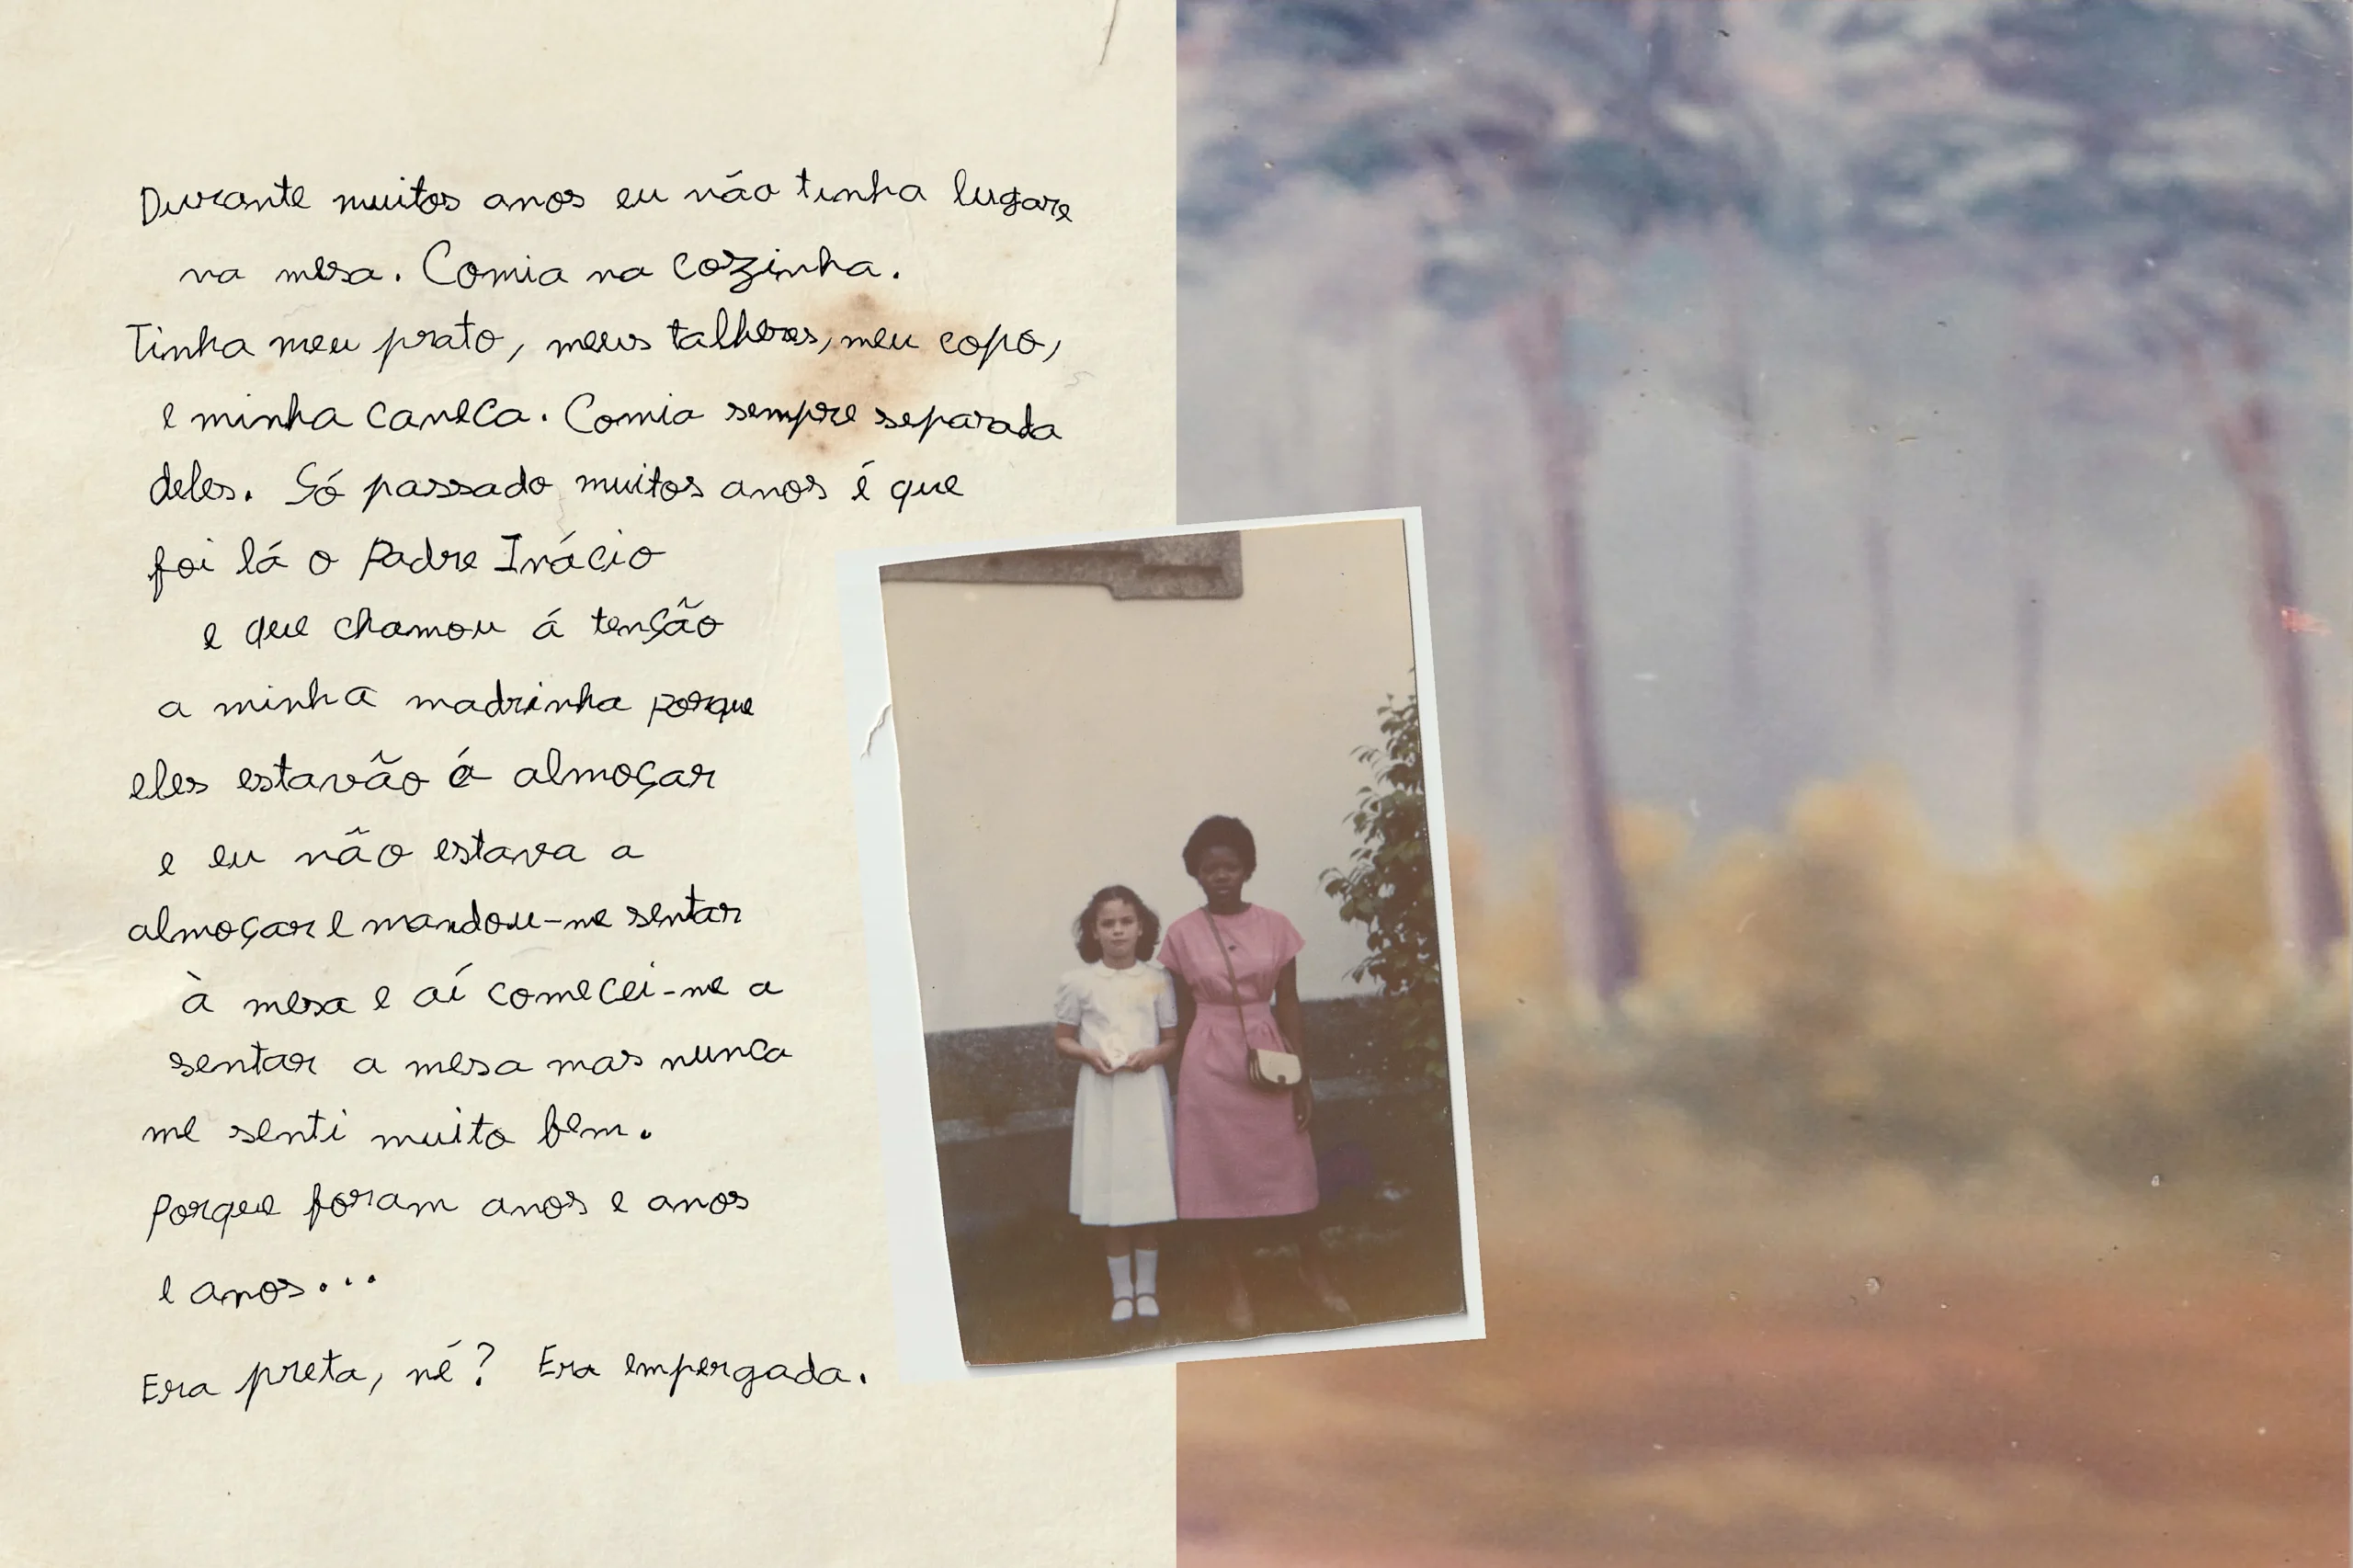 Durante muitos anos eu não tinha lugare
na mesa. Comia na cozinha.
Tinha meu prato, meus talheres, meu copo,
e minha caneca. Comia sempre separada
deles. Só passado muitos anos é que
foi lá o Padre Inácio
e que chamou á tenção
a minha madrinha porque
eles estavão á almoçar
e eu não estava a
almoçar e mandou-me sentar
à mesa e aí comecei-me a
sentar a mesa mas nunca
me senti muito bem.
Porque foram anos e anos
e anos...
Era preta, né? Era impergada.